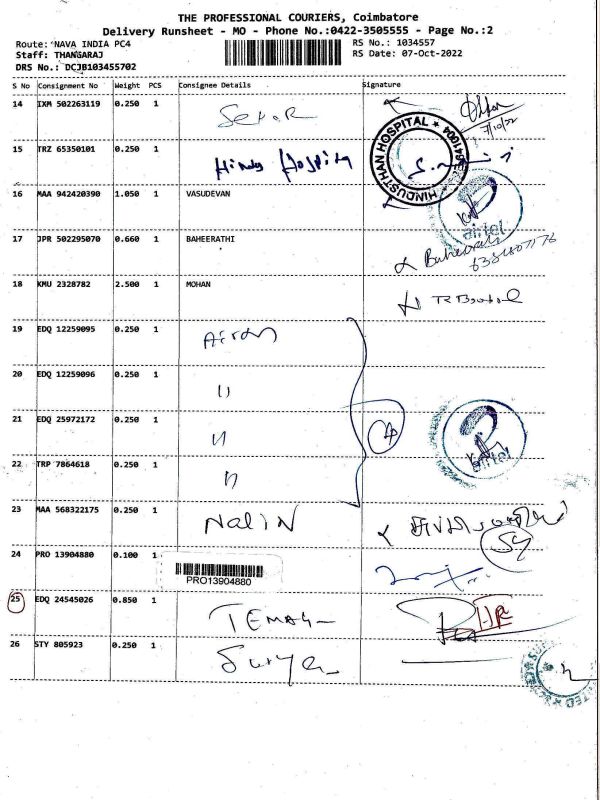 THE PROFESSIONAL COURIERS, Coimbatore
Delivery Runsheet - MO - Phone No.:0422-3505555 - Page No.:2
Route: NAVA INDIA PC4 RS No.: 1034557
Staff: THANGARAJ RS Date: 07-Oct-2022
DRS No.: DCJB103455702
S No Consignment No Weight PCS Consignee Details Signature
14 IXM 502263119 0.250 1 7/10/22
15 TRZ 65350101 0.250 1 Hindu Hospital HINDUSTHAN HOSPITAL
16 MAA 942420390 1.050 1 VASUDEVAN airtel
17 JPR 502295070 0.660 1 BAHEERATHI Baheerathi
18 KMU 2328782 2.500 1 MOHAN
19 EDQ 12259095 0.250 1
20 EDQ 12259096 0.250 1 "
21 EDQ 25972172 0.250 1 " 4 airtel
22 TRP 7864618 0.250 1 "
23 MAA 568322175 0.250 1 Nalin
24 PRO 13904880 0.100 1
PRO13904880
25 EDQ 24545026 0.850 1
26 STY 805923 0.250 1 Surya